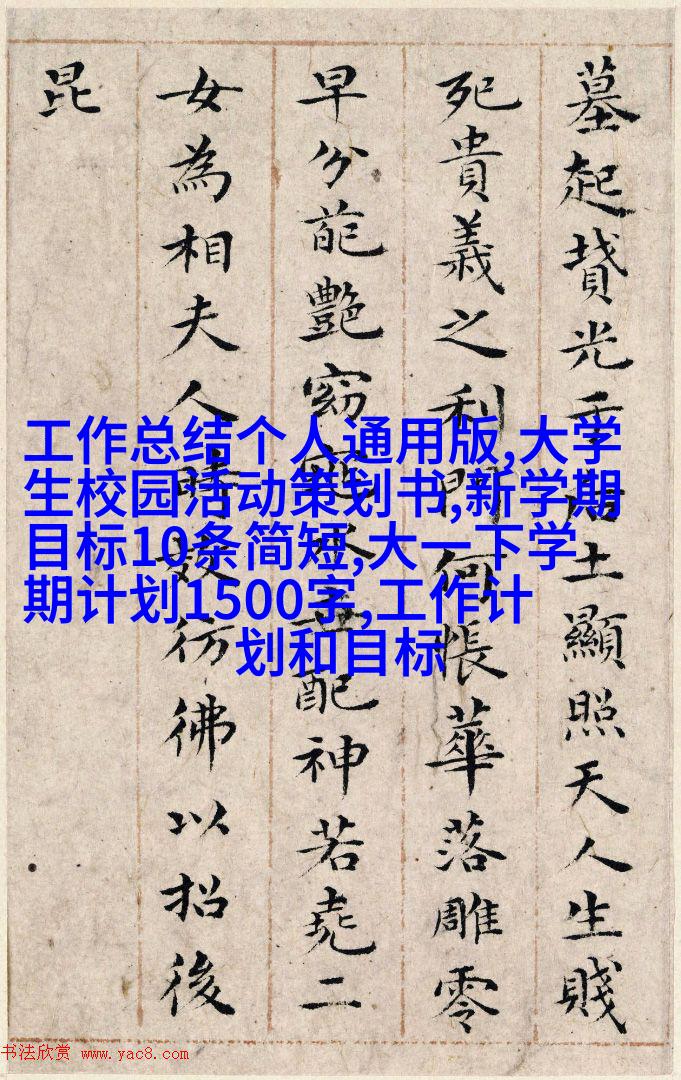 墓起墳光于后土顯照天人生賤
死貴義之利門何悵華落雕零
早分葩艷窈窕永世配神若堯二
女為相夫人時效仿彿以招後
昆
工作总结个人通用版,大学
生校园活动策划书,新学期
目标10条简短,大一下学
期计划1500字,工作计
划和目标
书法欣赏 www.yac8.com